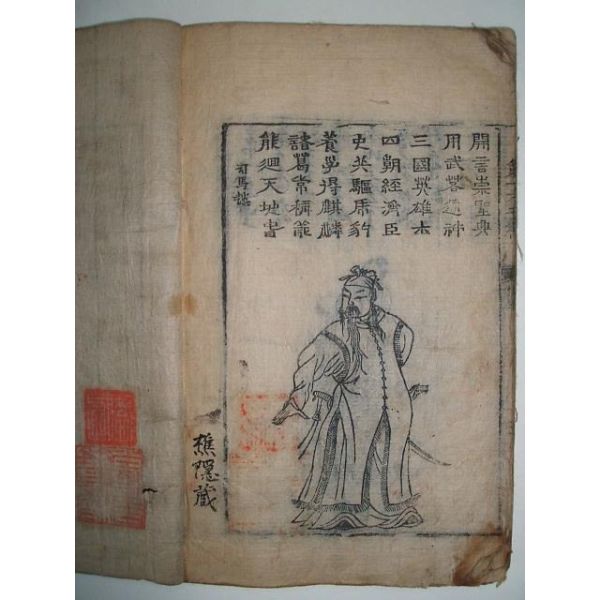 開言崇聖典
用武若通神
三國英雄士
四朝經濟臣
驅虎豹
養得麒麟
諸葛常稱
能迴天地
司馬懿
樵隱藏